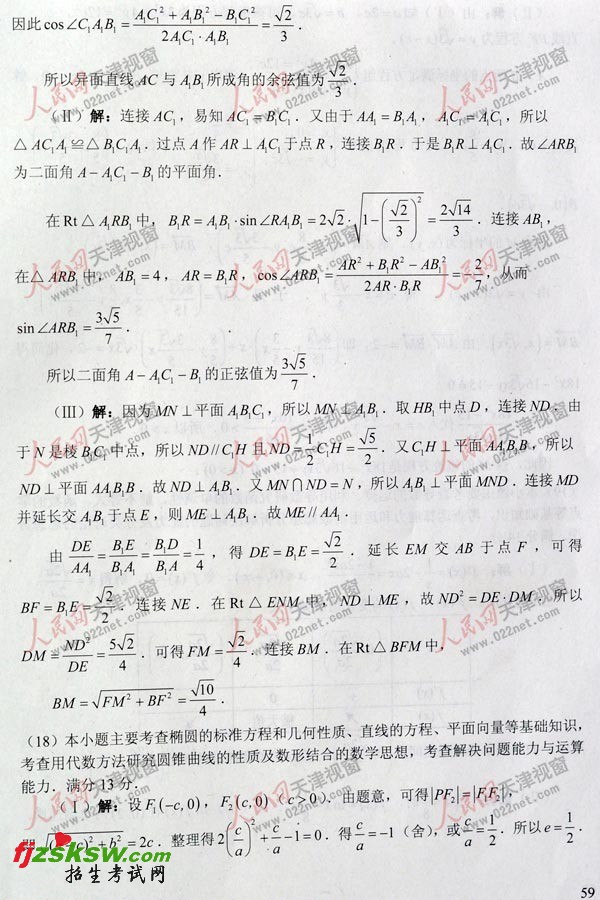 因此 cos∠C₁A₁B₁ = (A₁C₁² + A₁B₁² − B₁C₁²)/(2A₁C₁·A₁B₁) = √2/3 .
所以异面直线 AC 与 A₁B₁ 所成角的余弦值为 √2/3 .
（Ⅱ）解：连接 AC₁，易知 AC₁ = B₁C₁ . 又由于 AA₁ = B₁A₁，A₁C₁ = A₁C₁，所以
△AC₁A₁ ≌ △B₁C₁A₁ . 过点 A 作 AR ⊥ A₁C₁ 于点 R，连接 B₁R . 于是 B₁R ⊥ A₁C₁ . 故 ∠ARB₁
为二面角 A − A₁C₁ − B₁ 的平面角.
在 Rt△A₁RB₁ 中，B₁R = A₁B₁·sin∠RA₁B₁ = 2√2·√(1−(√2/3)²) = 2√14/3 . 连接 AB₁，
在△ARB₁ 中，AB₁ = 4，AR = B₁R，cos∠ARB₁ = (AR² + B₁R² − AB₁²)/(2AR·B₁R) = −2/7，从而
sin∠ARB₁ = 3√5/7 .
所以二面角 A − A₁C₁ − B₁ 的正弦值为 3√5/7 .
（Ⅲ）解：因为 MN ⊥ 平面 A₁B₁C₁，所以 MN ⊥ A₁B₁ . 取 HB₁ 中点 D，连接 ND . 由
于 N 是棱 B₁C₁ 中点，所以 ND // C₁H 且 ND = 1/2 C₁H = √5/2 . 又 C₁H ⊥ 平面 AA₁B₁B，所以
ND ⊥ 平面 AA₁B₁B . 故 ND ⊥ A₁B₁ . 又 MN ∩ ND = N，所以 A₁B₁ ⊥ 平面 MND . 连接 MD
并延长交 A₁B₁ 于点 E，则 ME ⊥ A₁B₁ . 故 ME // AA₁ .
由 DE/AA₁ = B₁E/B₁A₁ = B₁D/B₁A = 1/4，得 DE = B₁E = √2/2 . 延长 EM 交 AB 于点 F，可得
BF = B₁E = √2/2 . 连接 NE . 在 Rt△ENM 中，ND ⊥ ME，故 ND² = DE·DM . 所以
DM = ND²/DE = 5√2/4 . 可得 FM = √2/4 . 连接 BM . 在 Rt△BFM 中，
BM = √(FM² + BF²) = √10/4 .
（18）本小题主要考查椭圆的标准方程和几何性质、直线的方程、平面向量等基础知识，
考查用代数方法研究圆锥曲线的性质及数形结合的数学思想，考查解决问题能力与运算
能力. 满分 13 分.
（Ⅰ）解：设 F₁(−c,0)，F₂(c,0) （c > 0）. 由题意，可得 |PF₂| = |F₁F₂|，
c)² + b² = 2c . 整理得 2(c/a)² + c/a − 1 = 0 . 得 c/a = −1（舍），或 c/a = 1/2 . 所以 e = 1/2 .
fjzsksw.com
招生考试网
59
人民网 天津视窗
www.022net.com